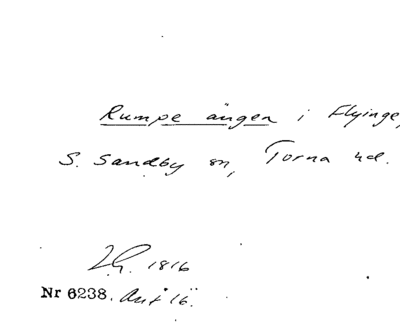 Rumpe ängen i Flyinge,
S. Sandby sn, Torna hd.
LG. 1816
Nr 6238. Akt 16.